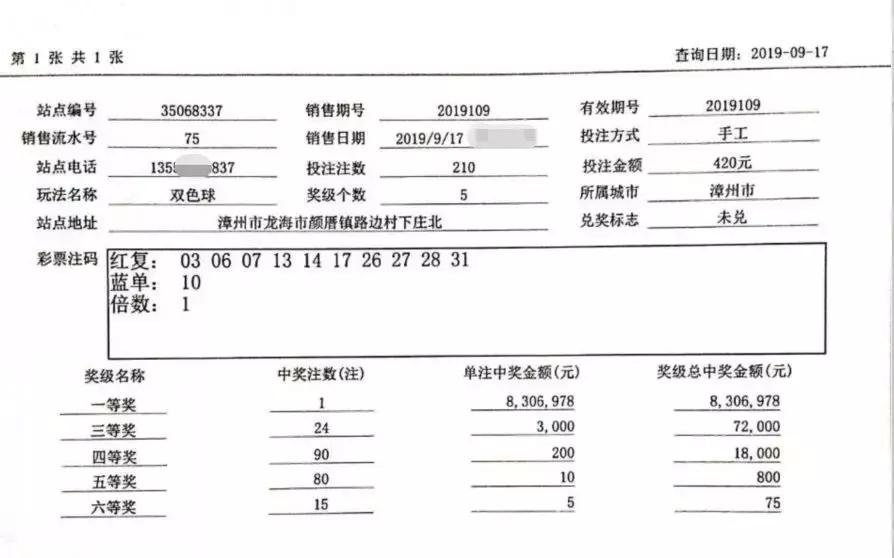 第 1 张 共 1 张 查询日期: 2019-09-17
站点编号 35068337 销售期号 2019109 有效期号 2019109
销售流水号 75 销售日期 2019/9/17 投注方式 手工
站点电话 135 837 投注注数 210 投注金额 420元
玩法名称 双色球 奖级个数 5 所属城市 漳州市
站点地址 漳州市龙海市颜厝镇路边村下庄北 兑奖标志 未兑
彩票注码 红复: 03 06 07 13 14 17 26 27 28 31
蓝单: 10
倍数: 1
奖级名称 中奖注数(注) 单注中奖金额(元) 奖级总中奖金额(元)
一等奖 1 8,306,978 8,306,978
三等奖 24 3,000 72,000
四等奖 90 200 18,000
五等奖 80 10 800
六等奖 15 5 75